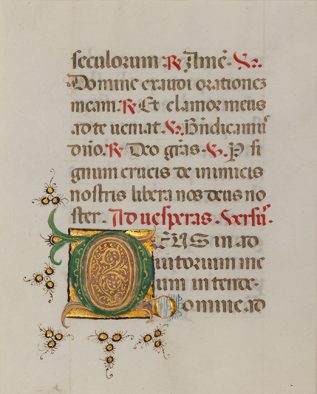 seculorum ℟ Amē. ℣.
Domine exaudi orationez
meam. ℟ Et clamor meus
ad te ueniat. ℣. Bn̄dicam⁹
dn̄o. ℟ Deo grās. ℣. P si
gnum crucis de inimicis
nostris libera nos deus no
ster. Ad uesperas. Versu᷒.
DEUS in ad
iutorium me
um intende.
Domine ad